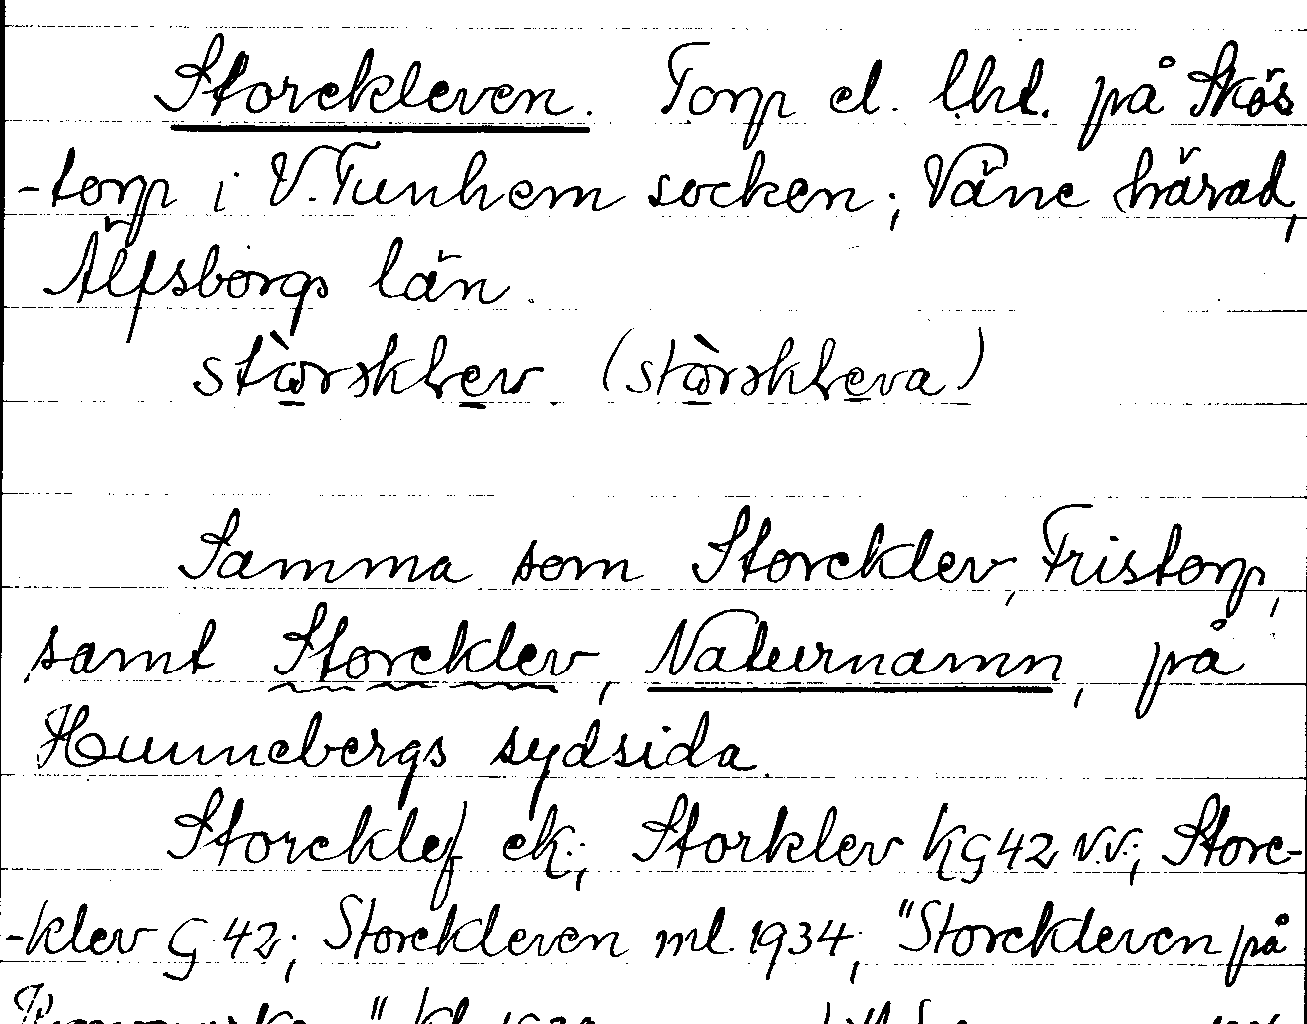 Storekleven. Torp el. lht. på Skös
-torp i V. Tunhem socken, Väne härad,
Älfsborgs län.
Samma som Storeklev, Fristorp,
samt Storeklev, Naturnamn, på
Hunnebergs sydsida.
Storeklef ek.; Storklev KG 42 v.v.; Store-
-klev G 42; Storekleven ml. 1934; "Storekleven på